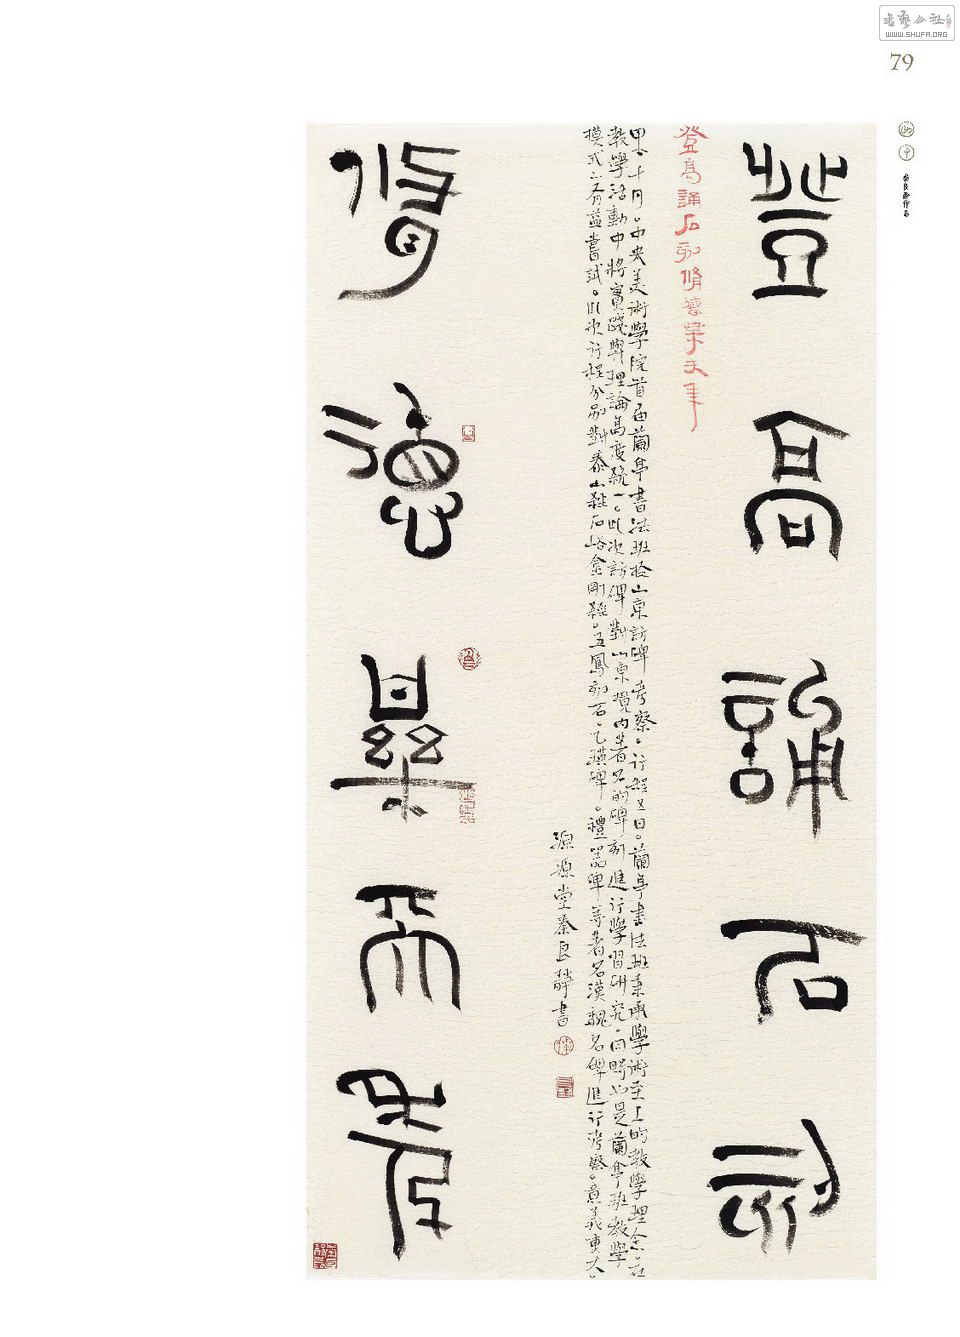 書藝公社
WWW.SHUFA.ORG
79
登高誦石刻
登高誦石刻脩德樂天年
甲午十月。中央美術學院首届蘭亭書法班於山東訪碑考察。行程五日。蘭亭書法班秉承學術至上的教學理念。在
教學活動中將實踐與理論高度統一。此次訪碑對山東境内著名的碑刻進行學習研究。同時也是蘭亭班教學
模式之有益嘗試。此次行程分別對泰山經石峪金剛經。五鳳刻石。乙瑛碑。禮器碑等著名漢魏名碑進行考察。意義重大。
源源堂秦良靜書
脩德樂天年